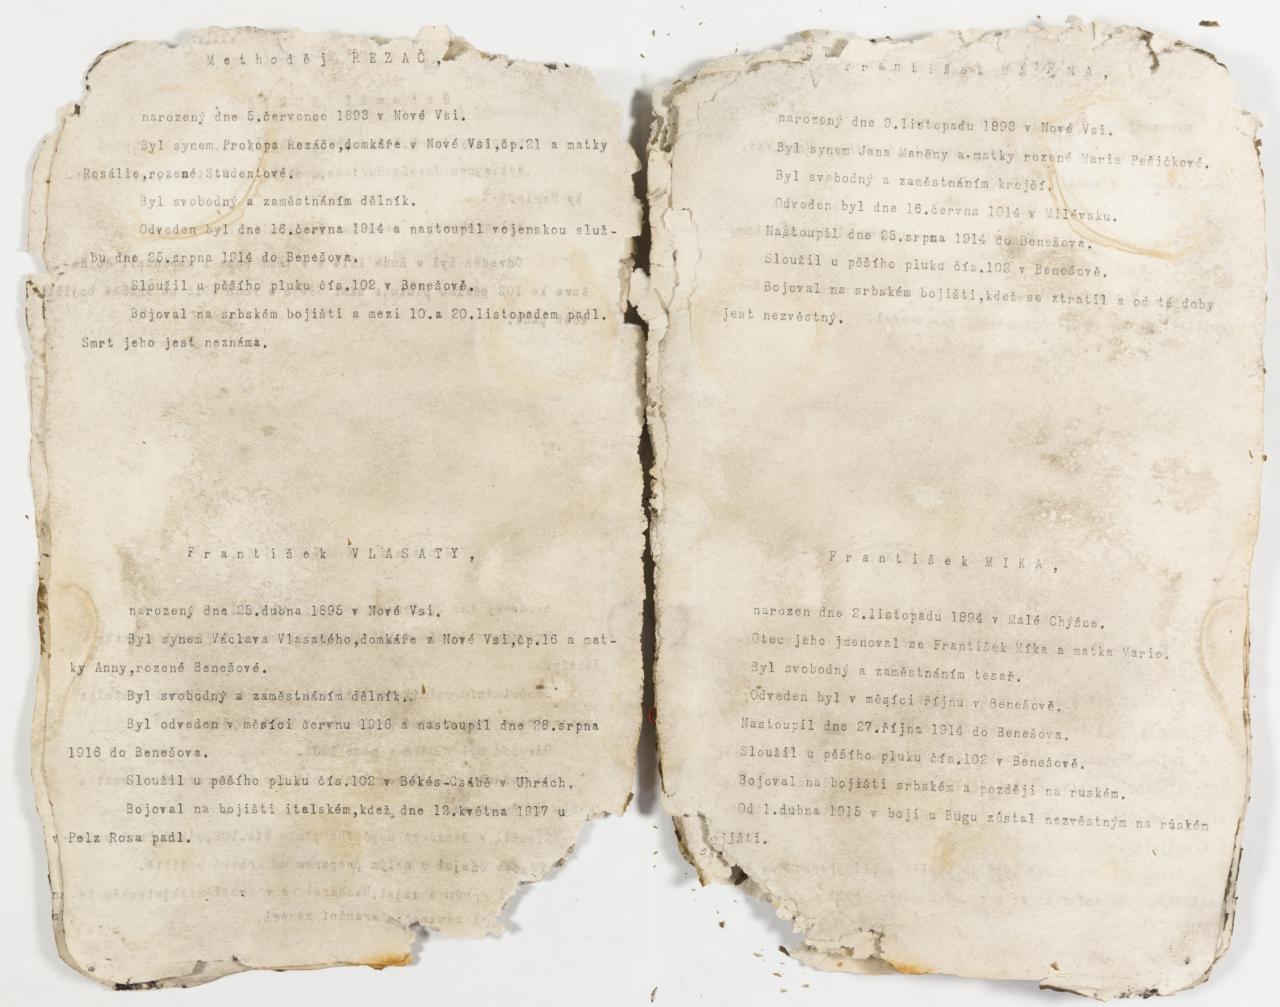 Methoděj ŘEZAČ,
narozený dne 5.července 1893 v Nové Vsi.
Byl synem Prokopa Řezáče,domkáře v Nové Vsi,čp.21 a matky
Rosálie,rozené Studentové.
Byl svobodný a zaměstnáním dělník.
Odveden byl dne 16.června 1914 a nastoupil vojenskou služ-
bu dne 25.srpna 1914 do Benešova.
Sloužil u pěšího pluku čís.102 v Benešově.
Bojoval na srbském bojišti a mezi 10.a 20.listopadem padl.
Smrt jeho jest neznáma.
František VLASATÝ,
narozený dne 25.dubna 1895 v Nové Vsi.
Byl synem Václava Vlasatého,domkáře z Nové Vsi,čp.16 a mat-
ky Anny,rozené Benešové.
Byl svobodný a zaměstnáním dělník.
Byl odveden v měsíci červnu 1916 a nastoupil dne 28.srpna
1916 do Benešova.
Sloužil u pěšího pluku čís.102 v Békés-Csábě v Uhrách,
Bojoval na bojišti italském,kdež dne 12.května 1917 u
v Pelz Rosa padl.
František MÁLENA,
narozený dne 9.listopadu 1893 v Nové Vsi.
Byl synem Jana a matky rozené Marie Pešičkové.
Byl svobodný a zaměstnáním krejčí.
Odveden byl dne 16.června 1914 v Milévsku.
Nastoupil dne 25.srpna 1914 do Benešova.
Sloužil u pěšího pluku čís.102 v Benešově.
Bojoval na srbském bojišti,kdež se ztratil a od té doby
jest nezvěstný.
František MIKA,
narozen dne 2.listopadu 1894 v Malé Chýšce.
Otec jeho jmenoval se František Míka a matka Marie.
Byl svobodný a zaměstnáním tesař.
Odveden byl v měsíci říjnu v Benešově.
Nastoupil dne 27.října 1914 do Benešova.
Sloužil u pěšího pluku čís.102 v Benešově.
Bojoval na bojišti srbském a později na ruském.
Od 1.dubna 1915 v boji u Bugu zůstal nezvěstným na růském
jišti.